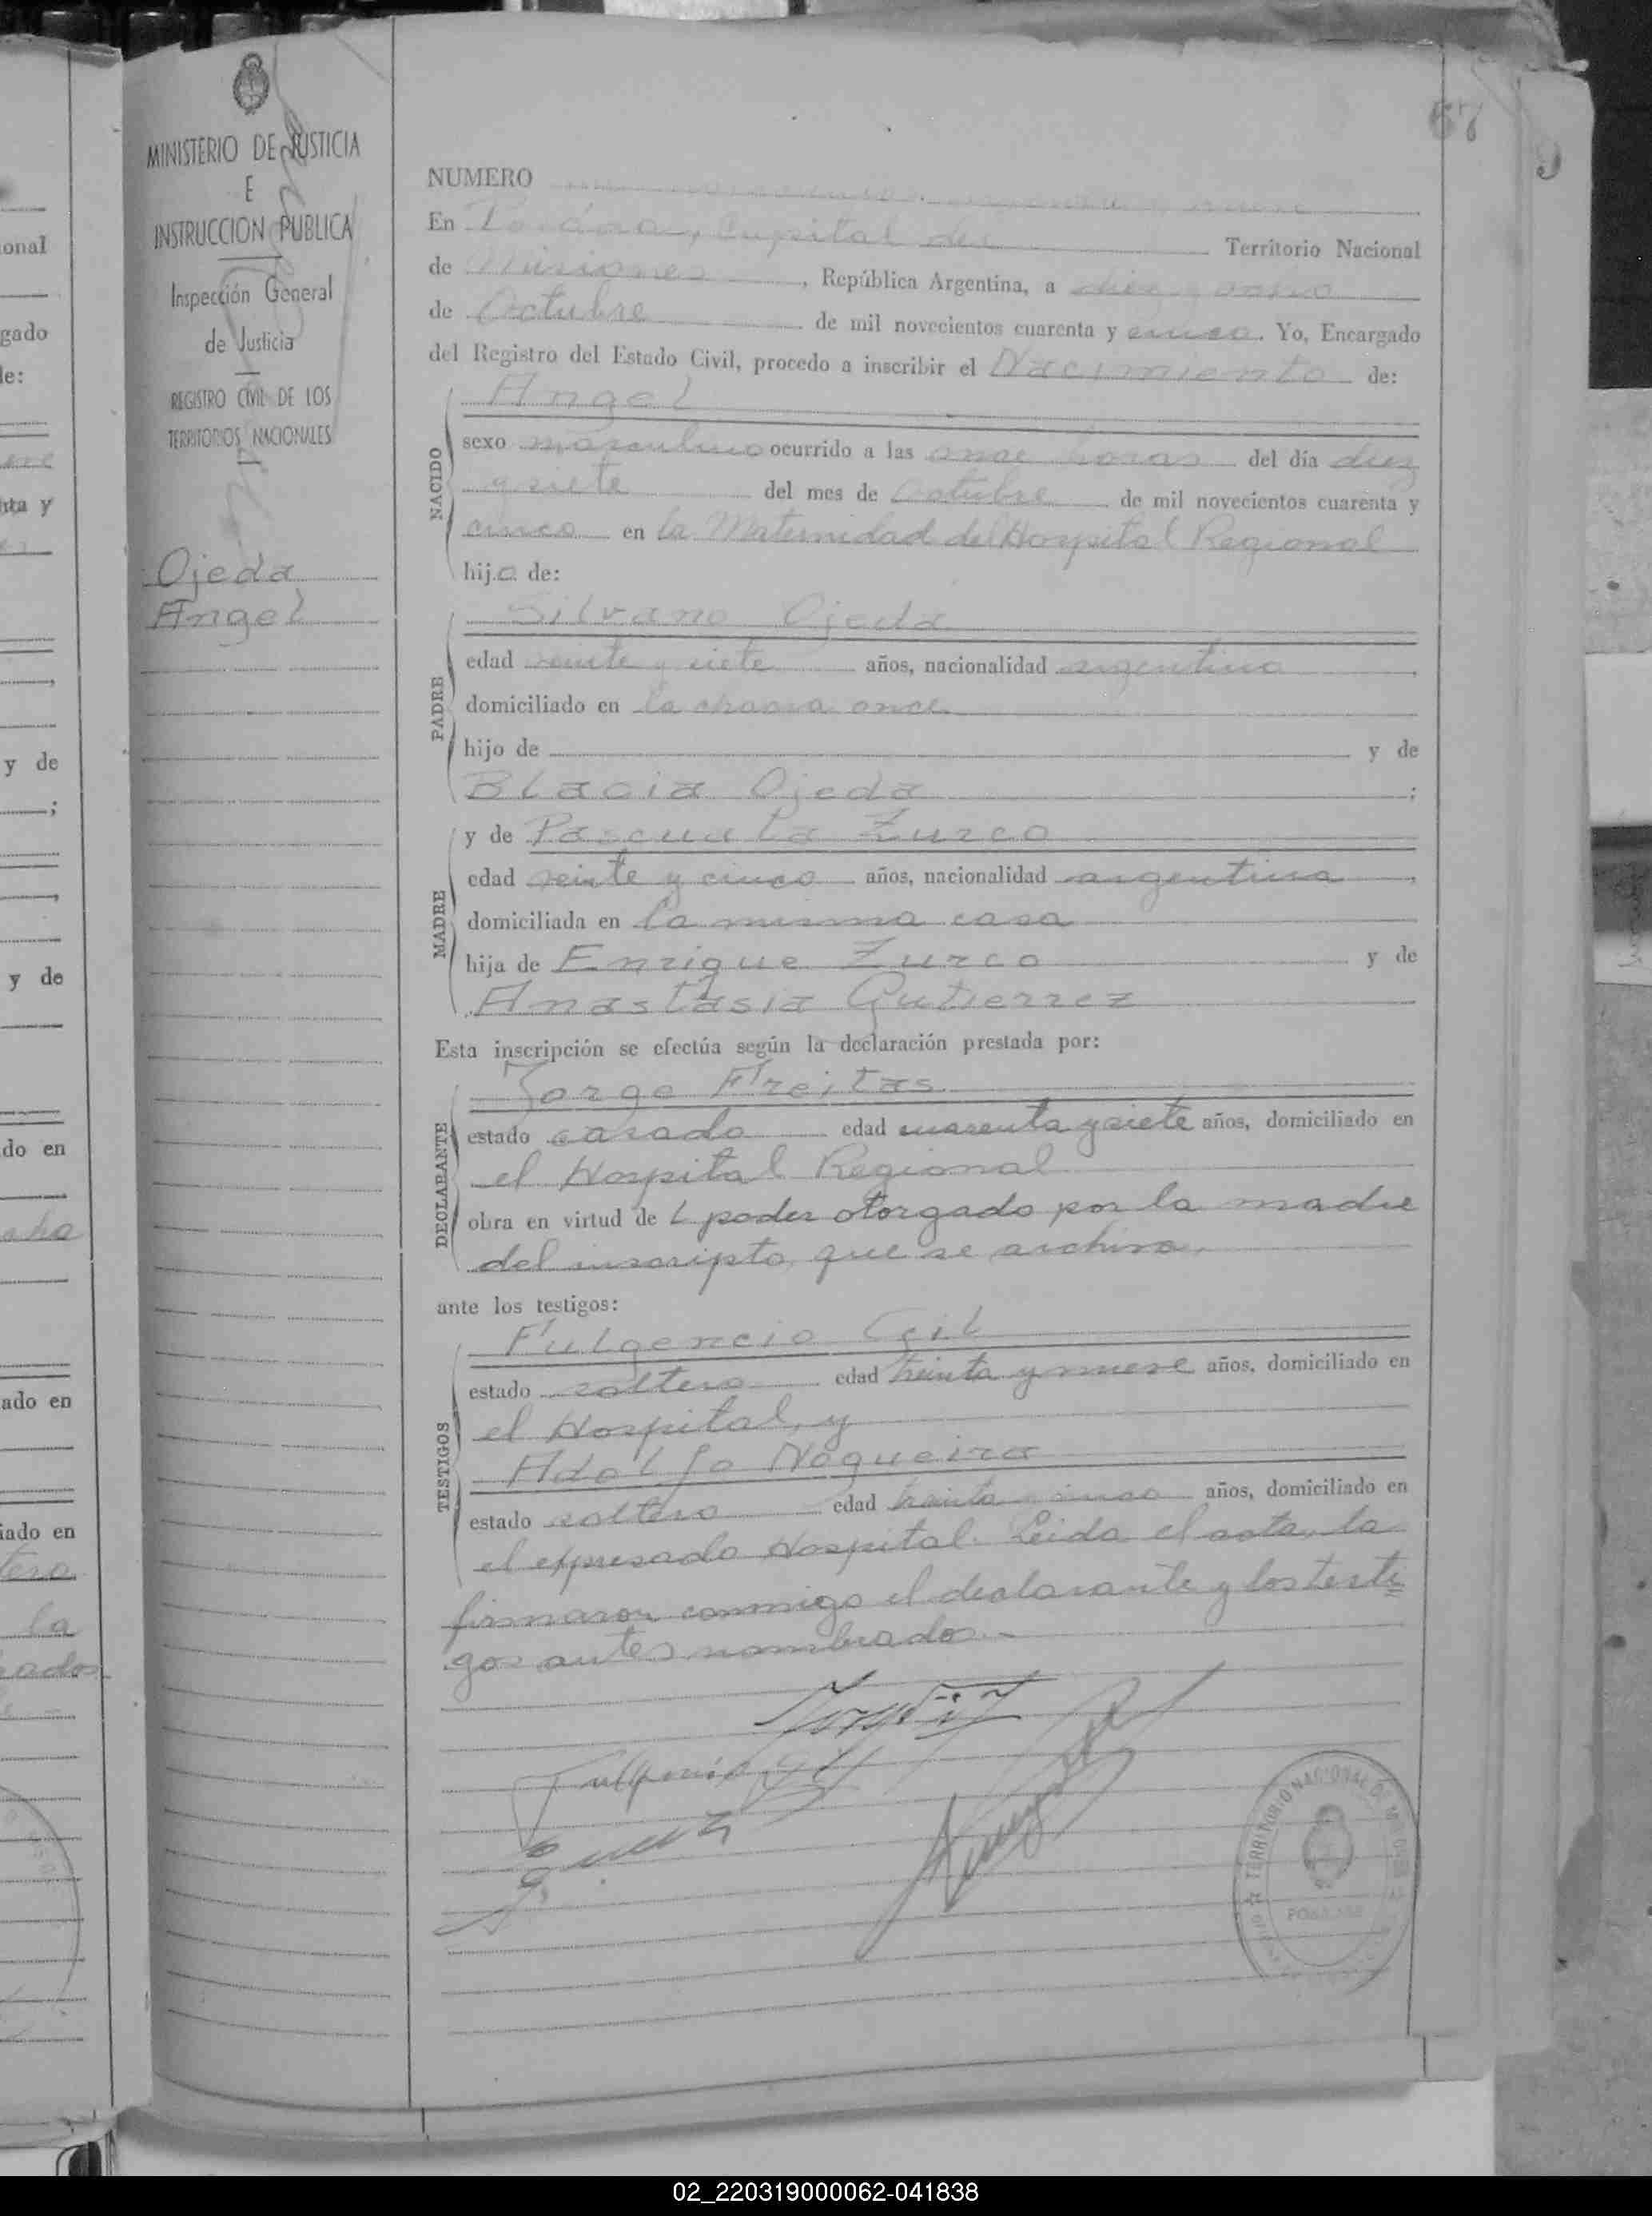 67
MINISTERIO DE JUSTICIA
E
INSTRUCCION PUBLICA
Inspección General
de Justicia
REGISTRO CIVIL DE LOS
TERRITORIOS NACIONALES
Ojeda
Angel
NUMERO
En Posadas, Capital del Territorio Nacional
de Misiones, República Argentina, a diez y ocho
de Octubre de mil novecientos cuarenta y cinco. Yo, Encargado
del Registro del Estado Civil, procedo a inscribir el Nacimiento de:
NACIDO
Angel
sexo masculino ocurrido a las once horas del día diez
y siete del mes de Octubre de mil novecientos cuarenta y
cinco en la Maternidad del Hospital Regional
hijo de:
PADRE
Silvano Ojeda
edad veinte y siete años, nacionalidad argentina
domiciliado en la chacra once
hijo de y de
Blacia Ojeda ;
MADRE
y de Pascuala Zurco
edad veinte y cinco años, nacionalidad argentina,
domiciliada en la misma casa
hija de Enrique Zurco y de
Anastasia Gutierrez
Esta inscripción se efectúa según la declaración prestada por:
DECLARANTE
Jorge Freitas
estado casado edad cuarenta y siete años, domiciliado en
el Hospital Regional
obra en virtud de l poder otorgado por la madre
del inscripto, que se archiva.
ante los testigos:
TESTIGOS
Fulgencio Gil
estado soltero edad treinta y nueve años, domiciliado en
el Hospital, y
Adolfo Nogueira
estado soltero edad treinta y cinco años, domiciliado en
el expresado Hospital. Leida el acta, la
firmaron conmigo el declarante y los testi=
gos antes nombrados.-
Fulgencio Gil
TERRITORIO NACIONAL DE
POSADAS
onal
gado
de:
nta y
y de
;
y de
do en
ado en
iado en
la
02_220319000062-041838